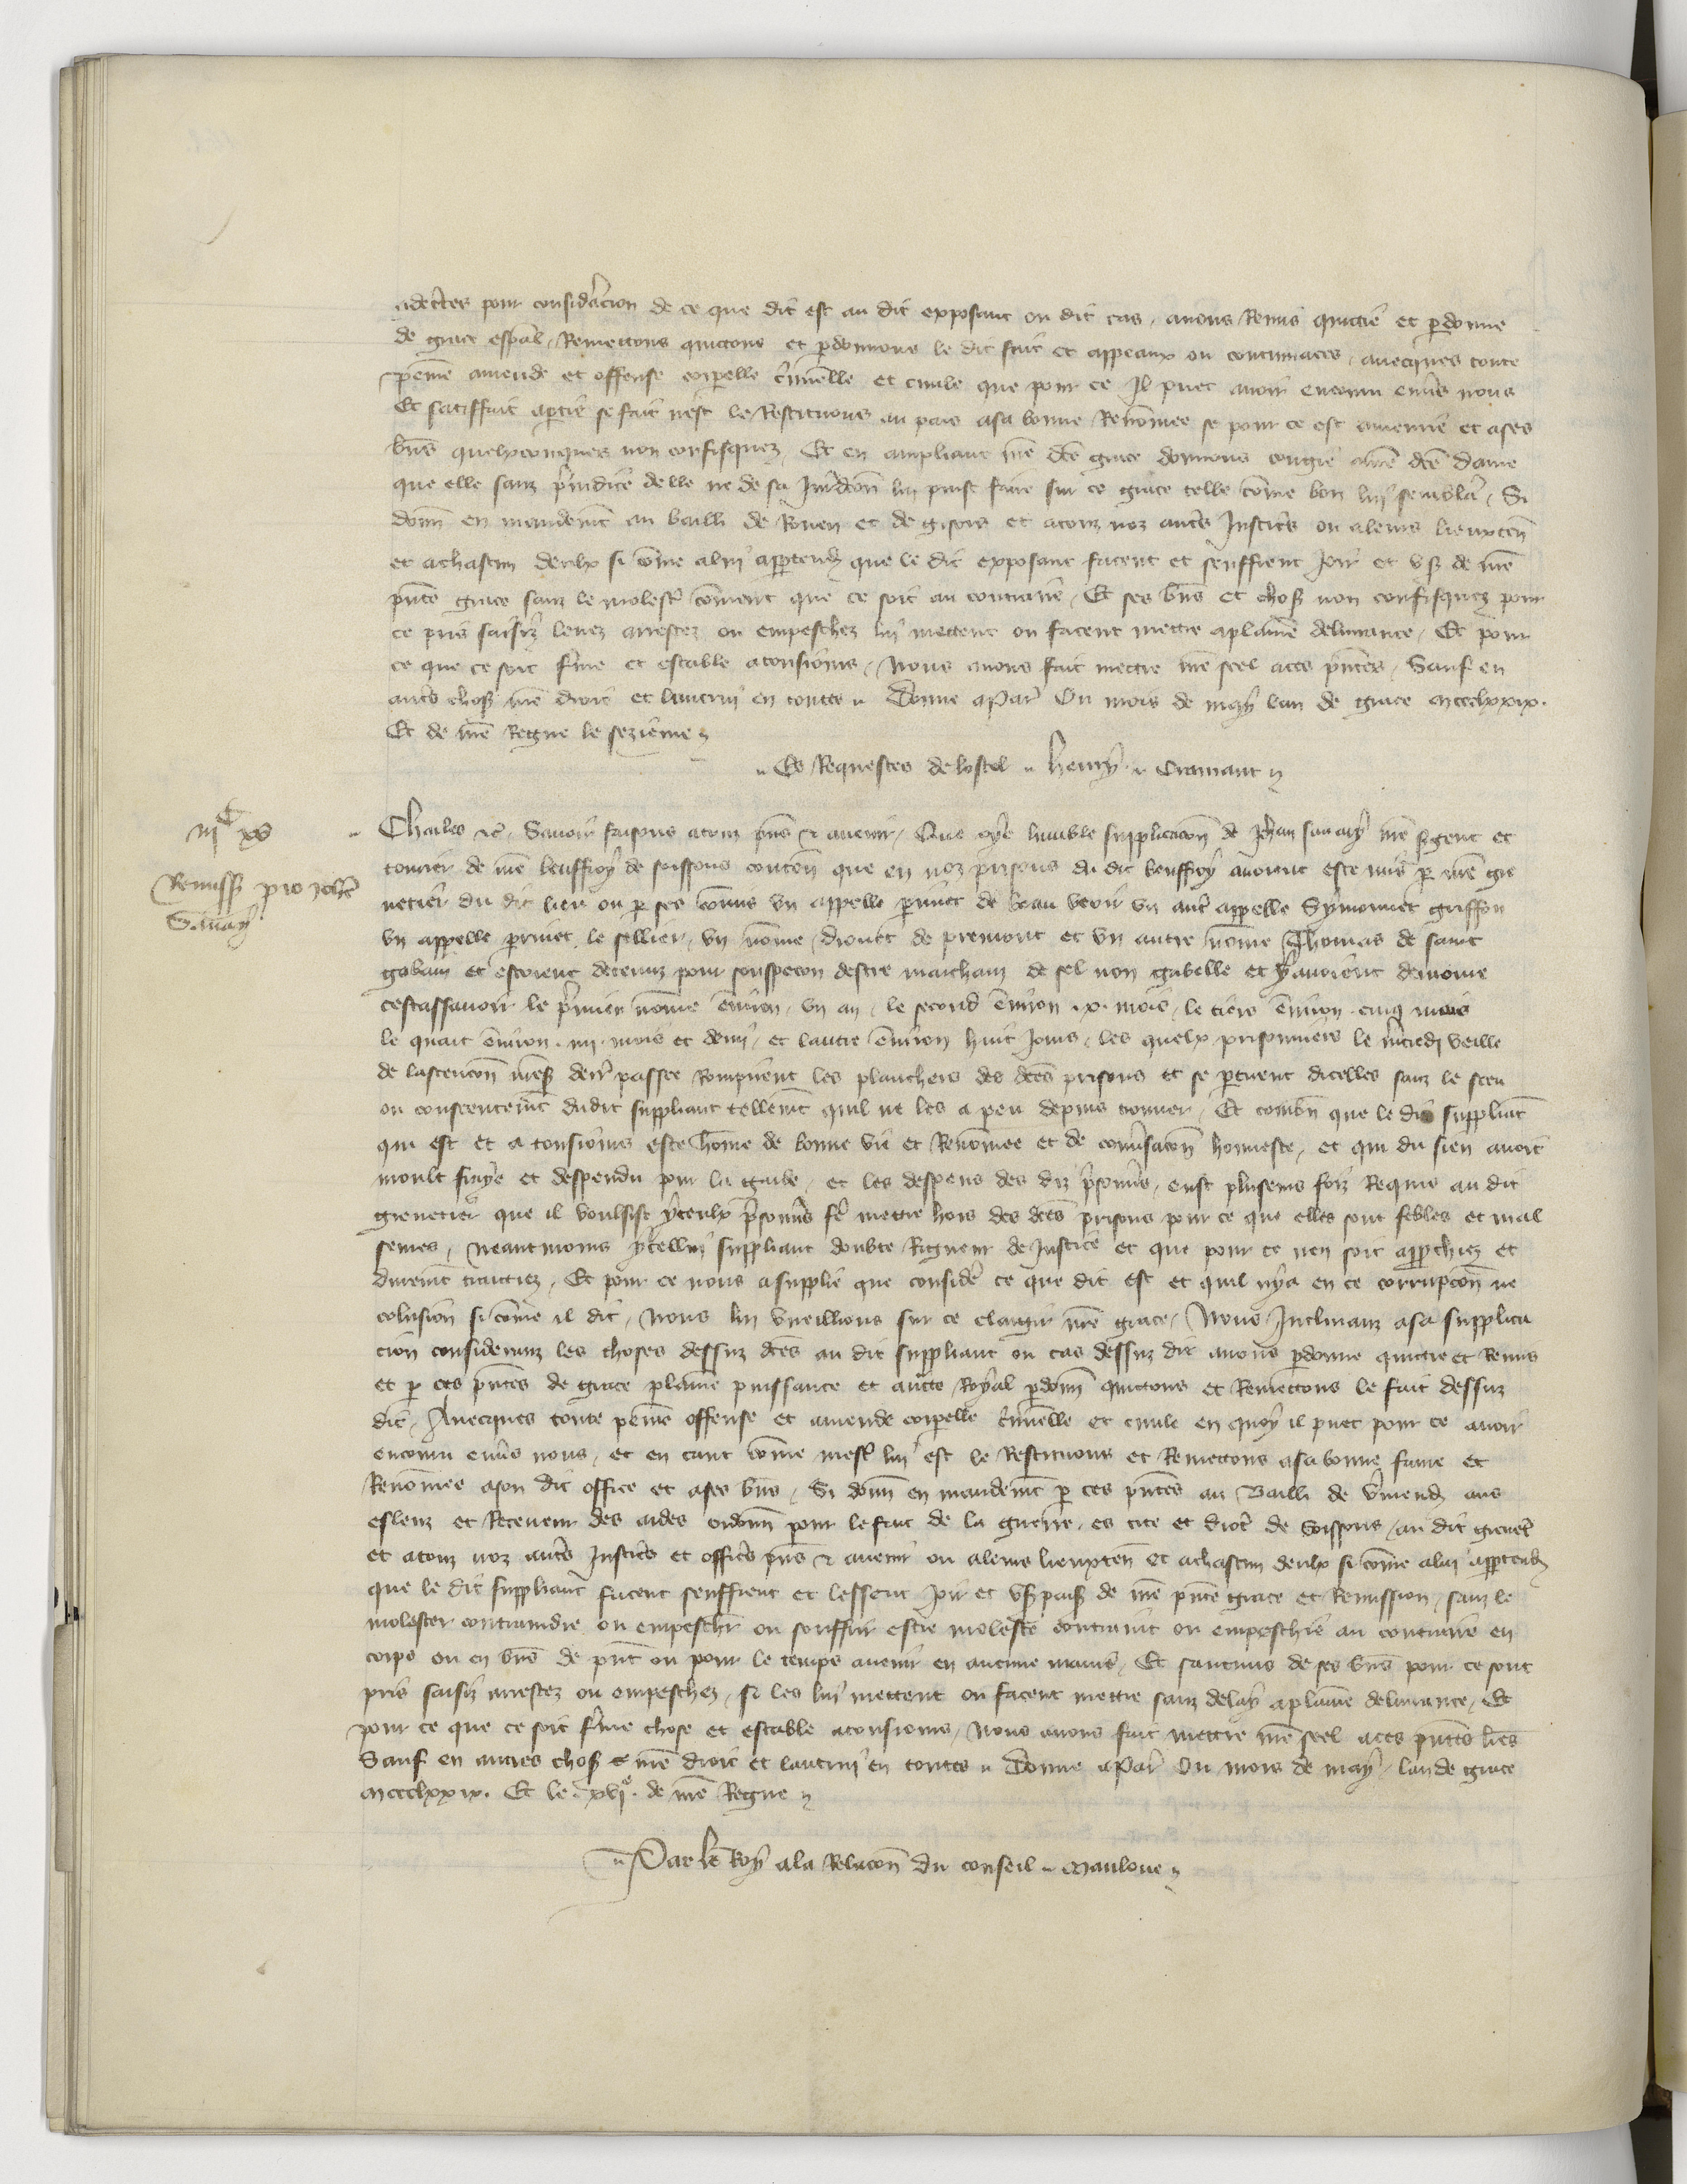 adcertes pour considâcion de ce que dit est au dit exposant ou dit cas, auons Remis quictie et pdonne
de grace espal, Remectons quictons et pdonnons le dit fait et appeaux ou contumaces, auecques toute
peine amende et offense corpelle cminelle et ciuile que pour ce Il puet auoir encouru enuers nous
Et satiffait aptie se fait nest le Restituons au pais asa bonne Renomee se pour ce est amenrie et ases
biens quelxconques non confisquez, Et en ampliant nre dce grace donnons congie dce dame
que elle sanz preiudice delle ne de sa Juridcon lui puist faire sur ce grace telle come bon lui semblera, Si
donn en mandemt au bailli de Rouen et de gisors et atouz noz autres Justicrs ou aleurs lieuxten
et achascun deulx si come alui appartendra que le dit exposant facent et seuffrent Joir et vser de nre
pnte grace sanz le molester coment que ce soit au contraire, Et ses biens et choses non confisquez pour
ce pris saisiz leuez arrestez ou empeschez lui mettent ou facent mettre aplaine deliurance, Et pour
ce que ce soit ferme et estable atousiours, Nous auons fait mettre nre seel aces pntes, Sauf en
autres choses nre droit et lautrui en toutes Donne aPar Ou mois de may lan de grace mccclxxix.
Et de nre Regne le sezieme
Es Requestes de lostel henry Cramant
iijC xv
Charles &c, Sauoir faisons atouz pns & auenir, Que oye lumble supplicacon de Jehan sauay nre sgent et
tourier de nre beuffroy de soissons conten que en noz prisons du dit beuffroy auoient este mis p nre gre
Remiss pro Johe
Sauay
netier du dit lieu ou p ses comis vn appelle prinet de beau veoir vn autre appelle Symonnet griffon
vn appelle prinet le sellier, vn nome drouet de premont et vn autre nome Thomas de saint
gobain et estoient detenuz pour souspecon destre marchanz de sel non gabelle et y auoient demoure
cestassauoir le pmier nome enuiron vn an, le second enuiron .x. mois, le tiers enuiron cinq mois
le quart enuiron .iiij. mois et demi, et lautre enuiron huit Jours, les quelx prisonniers le mcredi veille
de lascencon derr passee Rompirent les planchers des dces prisons et se ptirent dicelles sanz le sceu
ou consentemt dudit suppliant tellemt quil ne les a peu depuis trouuer, Et combn que le dit suppliat
qui est et a tousiours este home de bonne vie et Renomee et de conusacon honneste, et qui du sien auoit
moult fraye et despendu pour la garde, et les despens des diz prisonns, eust pluseurs foiz Requis au dit
grenetier que il voulsist yceulx prisonns fe mettre hors des dces prisons pour ce que elles sont febles et mal
seures, neantmoins ycellui suppliant doubte Rigueur de Justice et que pour ce nen soit approchiez et
duremt traittiez, Et pour ce nous a supplie que considere ce que dit est et quil nya en ce corrupcon ne
colusion si come il dit, Nous lui vueillions sur ce eslargir nre grace, Nous Inclinanz asa supplica
cion consideranz les choses dessuz dces au dit suppliant ou cas dessuz dit auons pdonne quictie et Remis
et p ces pntes de grace plaine puissance et aucte Royal pdonn quictons et Remectons le fait dessuz
dit, Auecques toute peine offense et amende corpelle cminelle et ciuile en quoy il puet pour ce auoir
encouru enuers nous, et en tant come mestr lui est le Restituons et Remectons asa bonne fame et
Renomee ason dit office et ases biens, Si donn en mandemt p ces pntes au Bailli de vmend aus
esleuz et Receueur des aides ordonn pour le fait de la guerre, es cite et dioc de soissons, au dit grenetr
et atouz noz autres Justicrs et officrs pns & auenir ou aleurs lieuxten et achascun deulx si come alui apptendra
que le dit suppliant facent seuffrent et lessent Joir et vser paisib de nre pnte grace et Remission, sanz le
molester contraindre ou empeschr ou souffrir estre moleste contraint ou empeschie au contraire en
corps ou en biens de pnt ou pour le temps auenir en aucune maniere, Et saucuns de ses biens pour ce sont
pris saisiz arrestez ou empeschez, si les lui mettent ou facent mettre sanz delay aplaine deliurance, Et
pour ce que ce soit ferme chose et estable atousiours, Nous auons fait mettre nre seel aces pntes lres
Sauf en autres choses nre droit et lautrui en toutes Donne aPar Ou mois de may, lan de grace
mccclxxix. Et le .xvje. de nre Regne
Par le Roy ala Relacon du conseil Mauloue